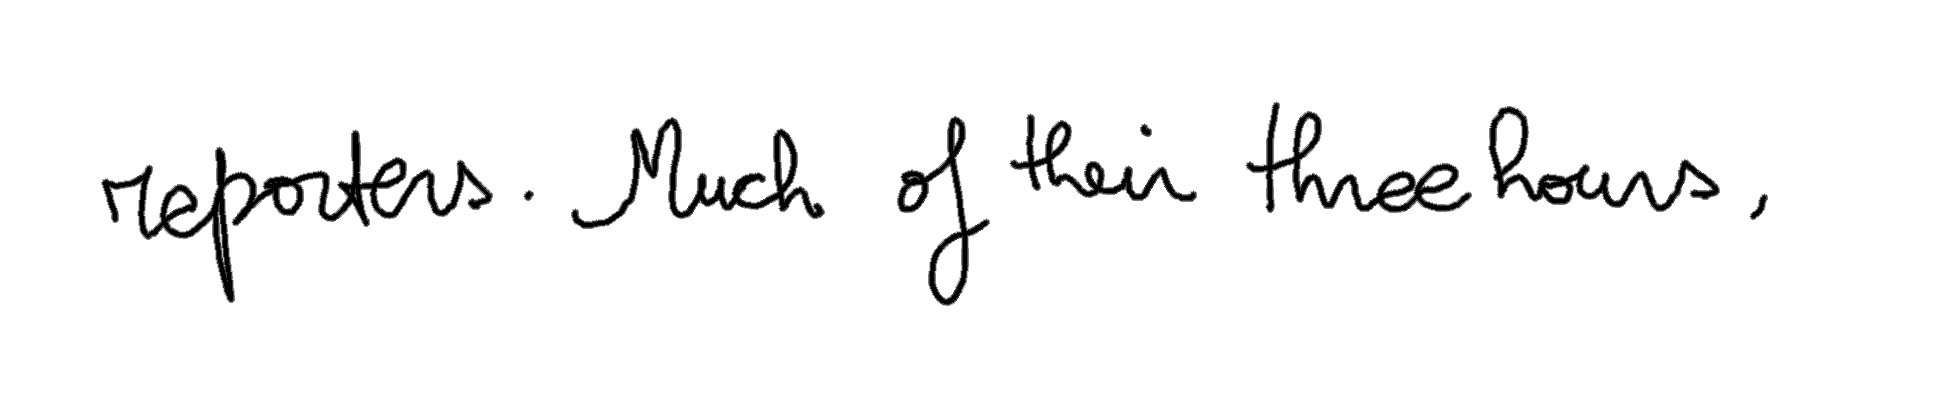 reporters. Much of their three hours,